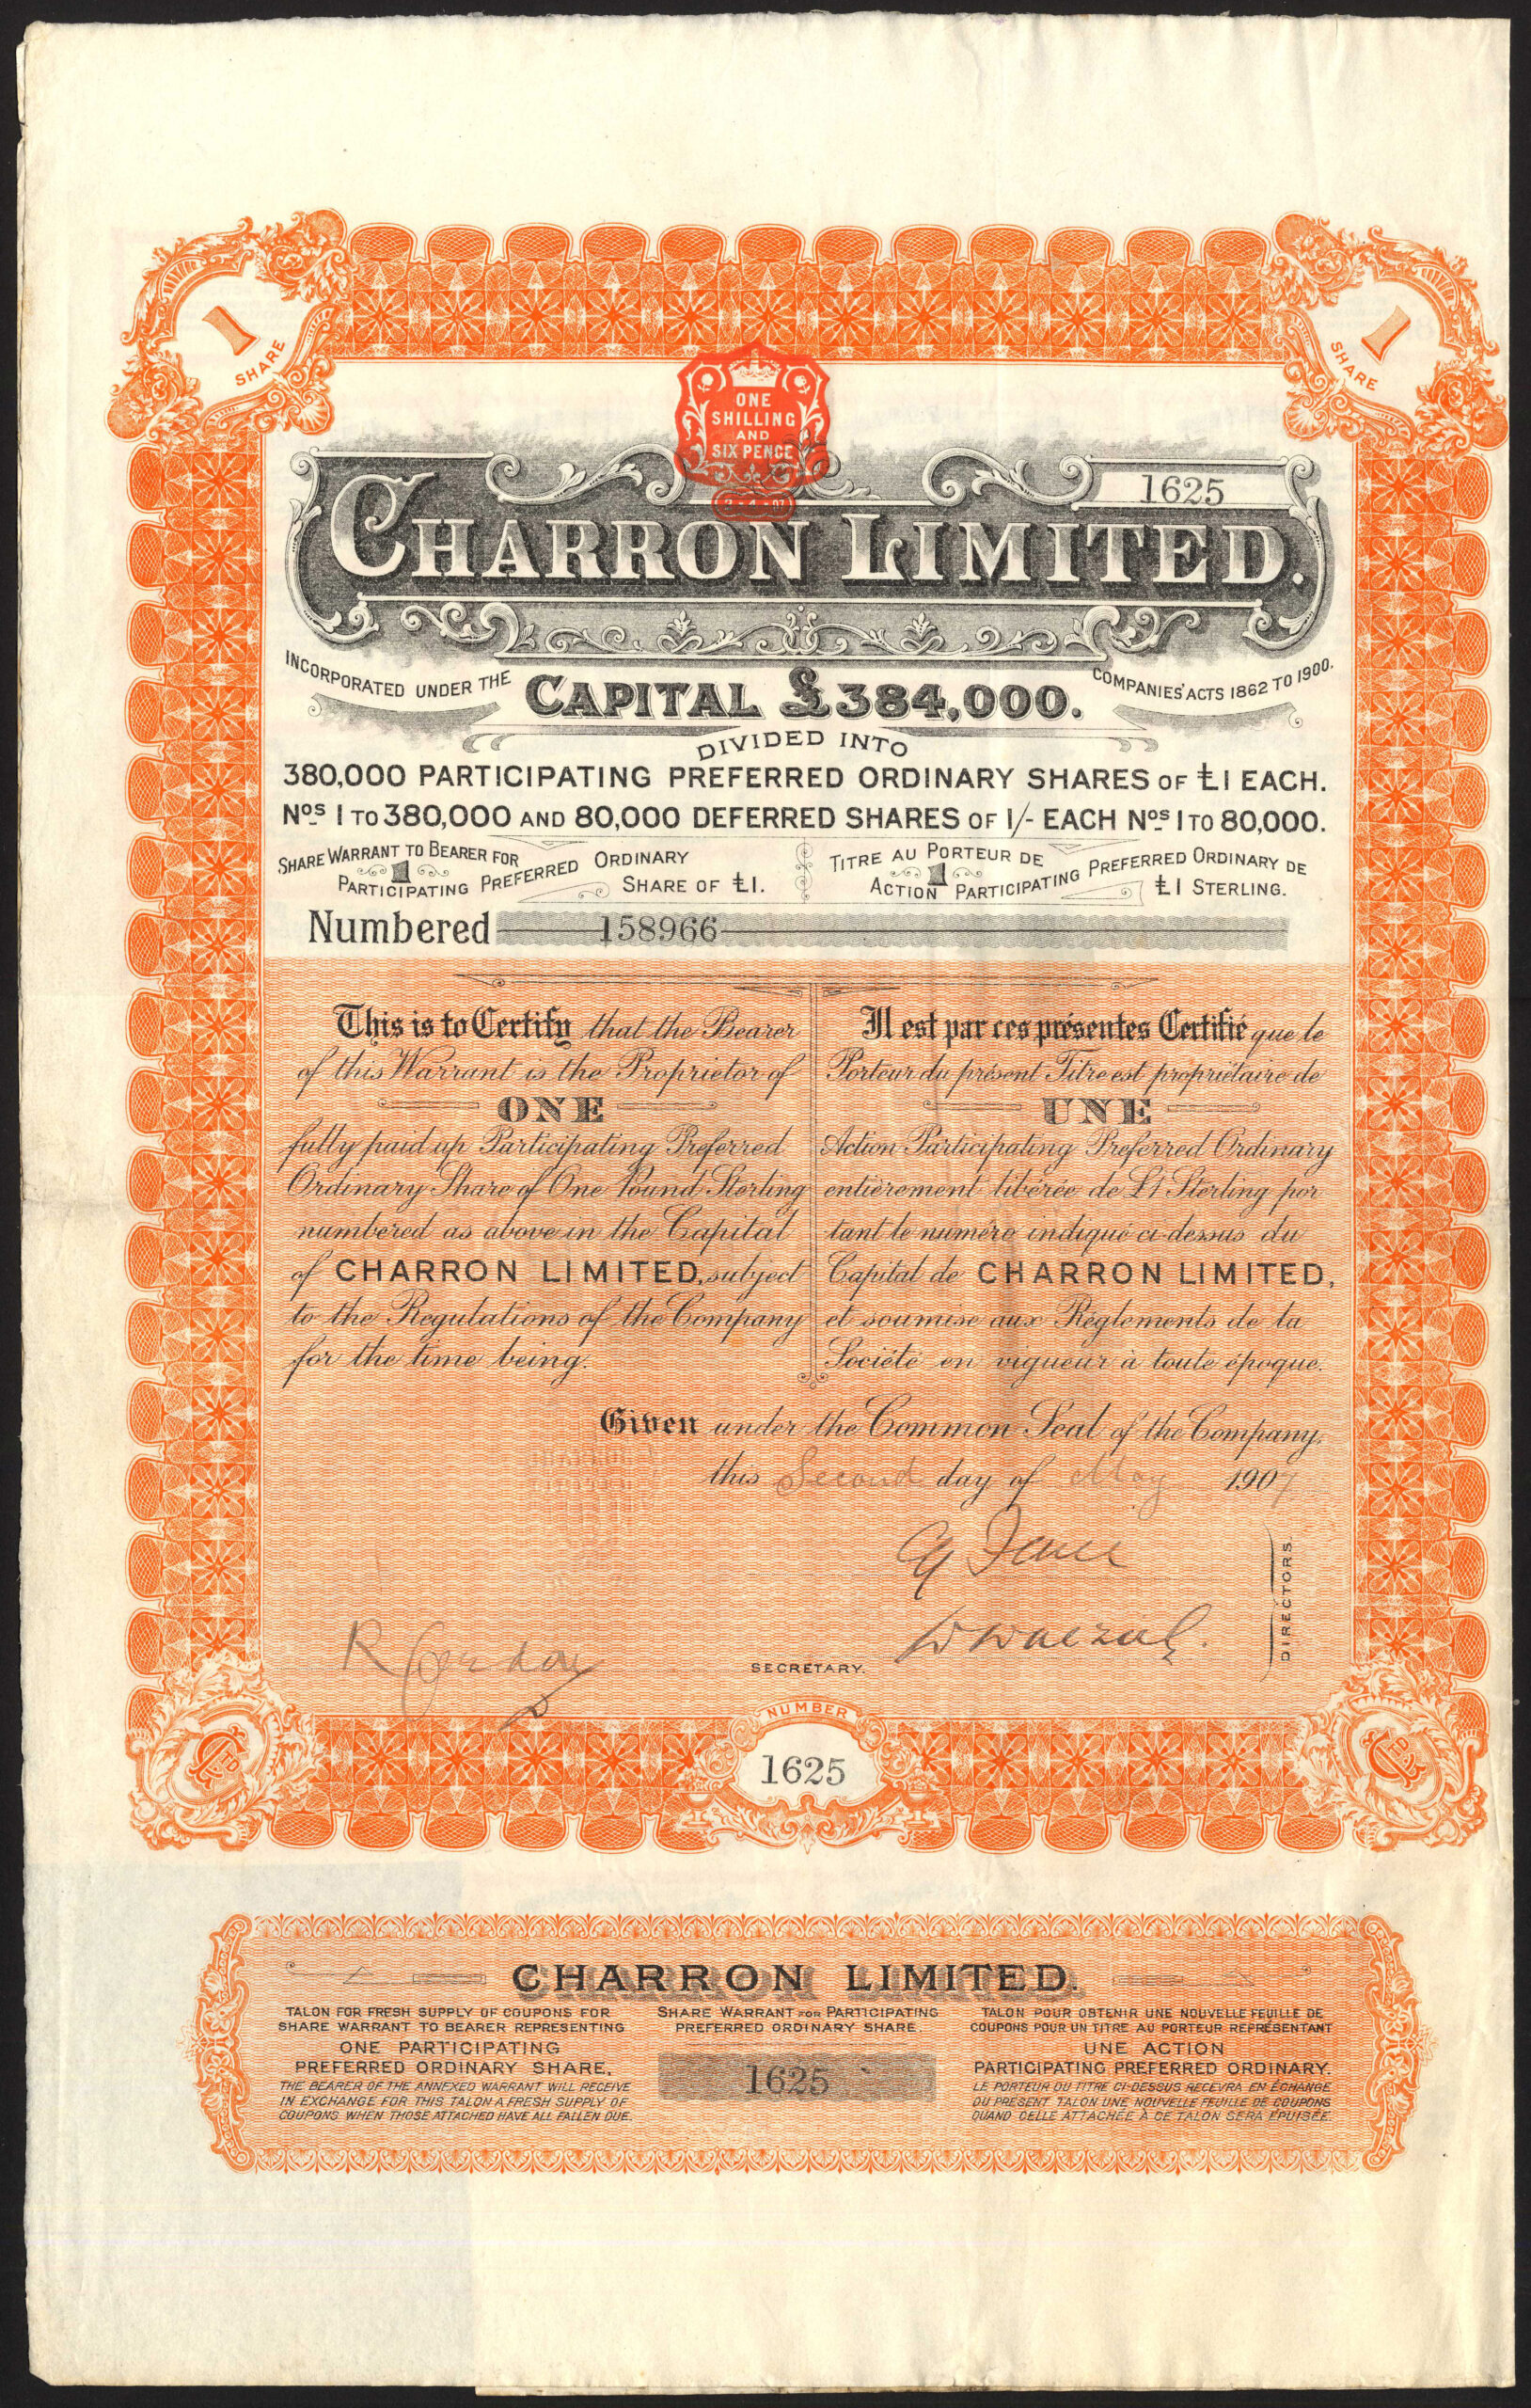 1
SHARE
1
SHARE
ONE
SHILLING
AND
SIX PENCE
1625
CHARRON LIMITED.
INCORPORATED UNDER THE COMPANIES' ACTS 1862 TO 1900.
CAPITAL £384,000.
DIVIDED INTO
380,000 PARTICIPATING PREFERRED ORDINARY SHARES OF £1 EACH.
Nos 1 TO 380,000 AND 80,000 DEFERRED SHARES OF 1/- EACH Nos 1 TO 80,000.
SHARE WARRANT TO BEARER FOR
1
PARTICIPATING PREFERRED ORDINARY
SHARE OF £1.
TITRE AU PORTEUR DE
1
ACTION PARTICIPATING PREFERRED ORDINARY DE
£1 STERLING.
Numbered 158966
This is to Certify that the Bearer
of this Warrant is the Proprietor of
ONE
fully paid up Participating Preferred
Ordinary Share of One Pound Sterling
numbered as above in the Capital
of CHARRON LIMITED, subject
to the Regulations of the Company
for the time being.
Il est par ces présentes Certifié que le
Porteur du présent Titre est propriétaire de
UNE
Action Participating Preferred Ordinary
entièrement libérée de £1 Sterling por
tant le numéro indiqué ci-dessus du
Capital de CHARRON LIMITED,
et soumise aux Règlements de la
Société en vigueur à toute époque.
Given under the Common Seal of the Company,
this Second day of May 1907
DIRECTORS.
SECRETARY.
NUMBER
1625
CHARRON LIMITED.
TALON FOR FRESH SUPPLY OF COUPONS FOR
SHARE WARRANT TO BEARER REPRESENTING
ONE PARTICIPATING
PREFERRED ORDINARY SHARE,
THE BEARER OF THE ANNEXED WARRANT WILL RECEIVE
IN EXCHANGE FOR THIS TALON A FRESH SUPPLY OF
COUPONS WHEN THOSE ATTACHED HAVE ALL FALLEN DUE.
SHARE WARRANT FOR PARTICIPATING
PREFERRED ORDINARY SHARE.
1625
TALON POUR OBTENIR UNE NOUVELLE FEUILLE DE
COUPONS POUR UN TITRE AU PORTEUR REPRÉSENTANT
UNE ACTION
PARTICIPATING PREFERRED ORDINARY.
LE PORTEUR DU TITRE CI-DESSUS RECEVRA EN ÉCHANGE
DU PRÉSENT TALON UNE NOUVELLE FEUILLE DE COUPONS
QUAND CELLE ATTACHÉE À CE TALON SERA ÉPUISÉE.